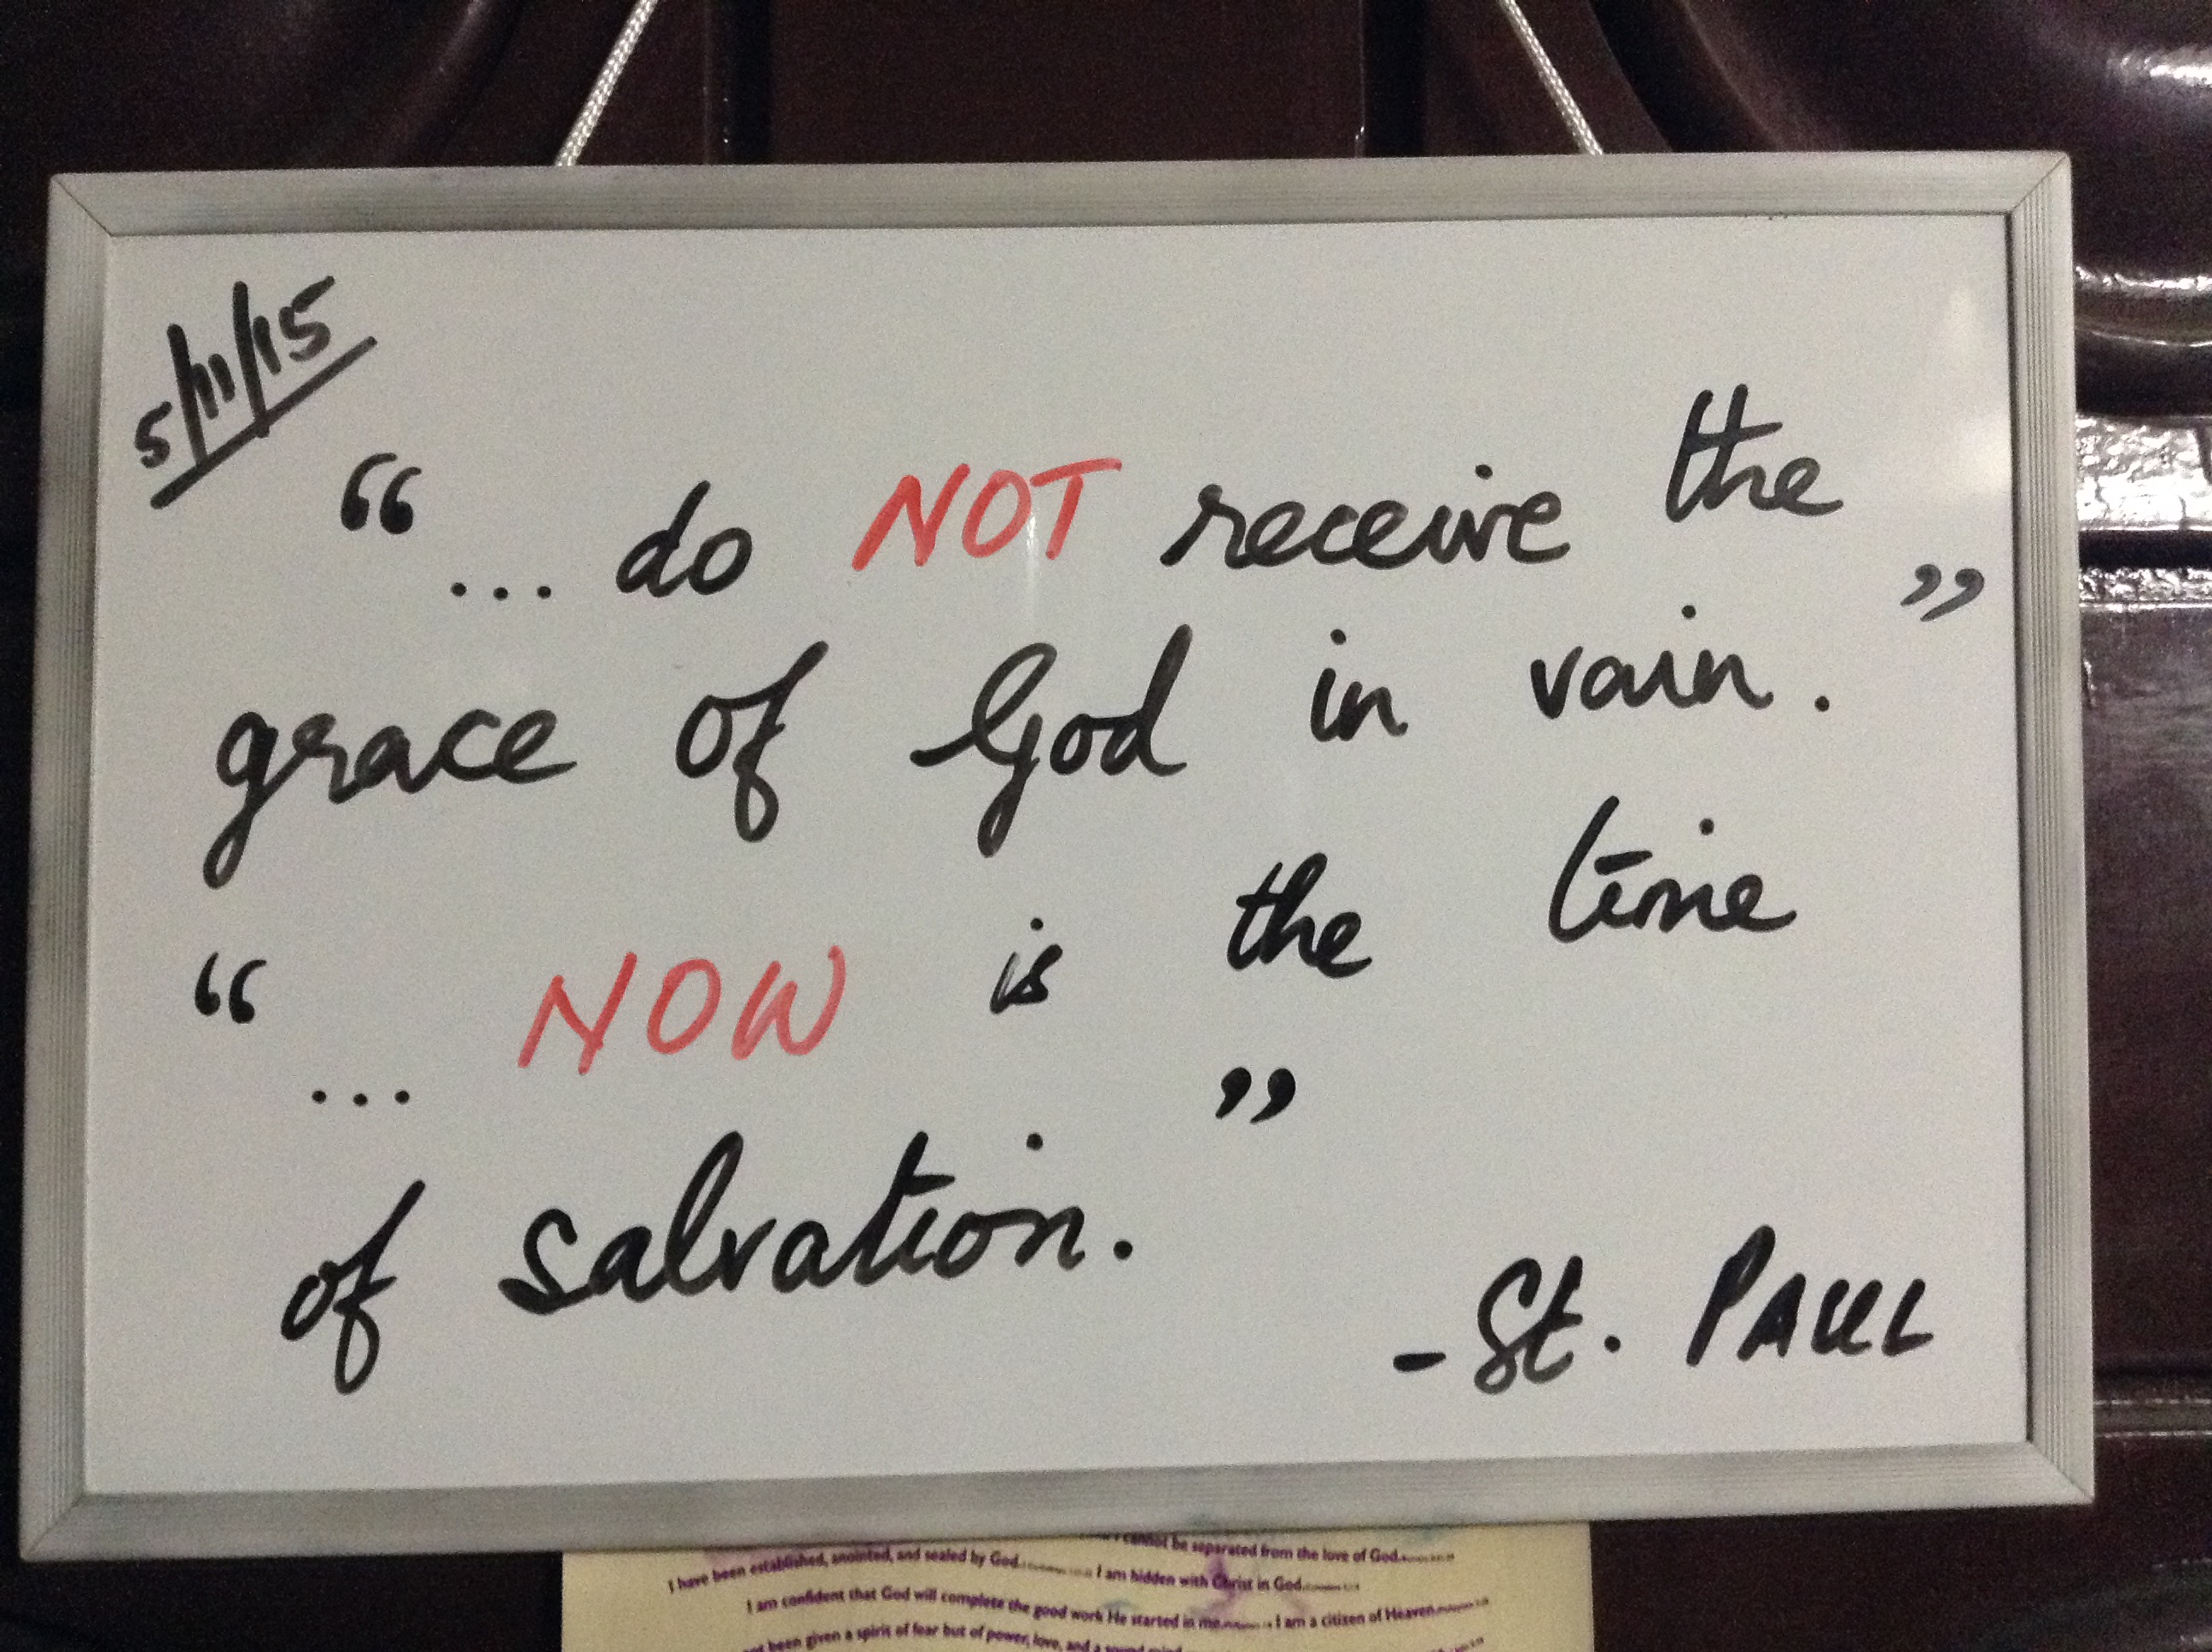 5/11/15
“... do NOT receive the
grace of God in vain.”
“... NOW is the time
of salvation.”
- St. PAUL
cannot be separated from the love of God
I have been established, anointed, and sealed by God I am hidden with Christ in God
I am confident that God will complete the good work He started in me I am a citizen of Heaven
been given a spirit of fear but of power, love, and a sound mind